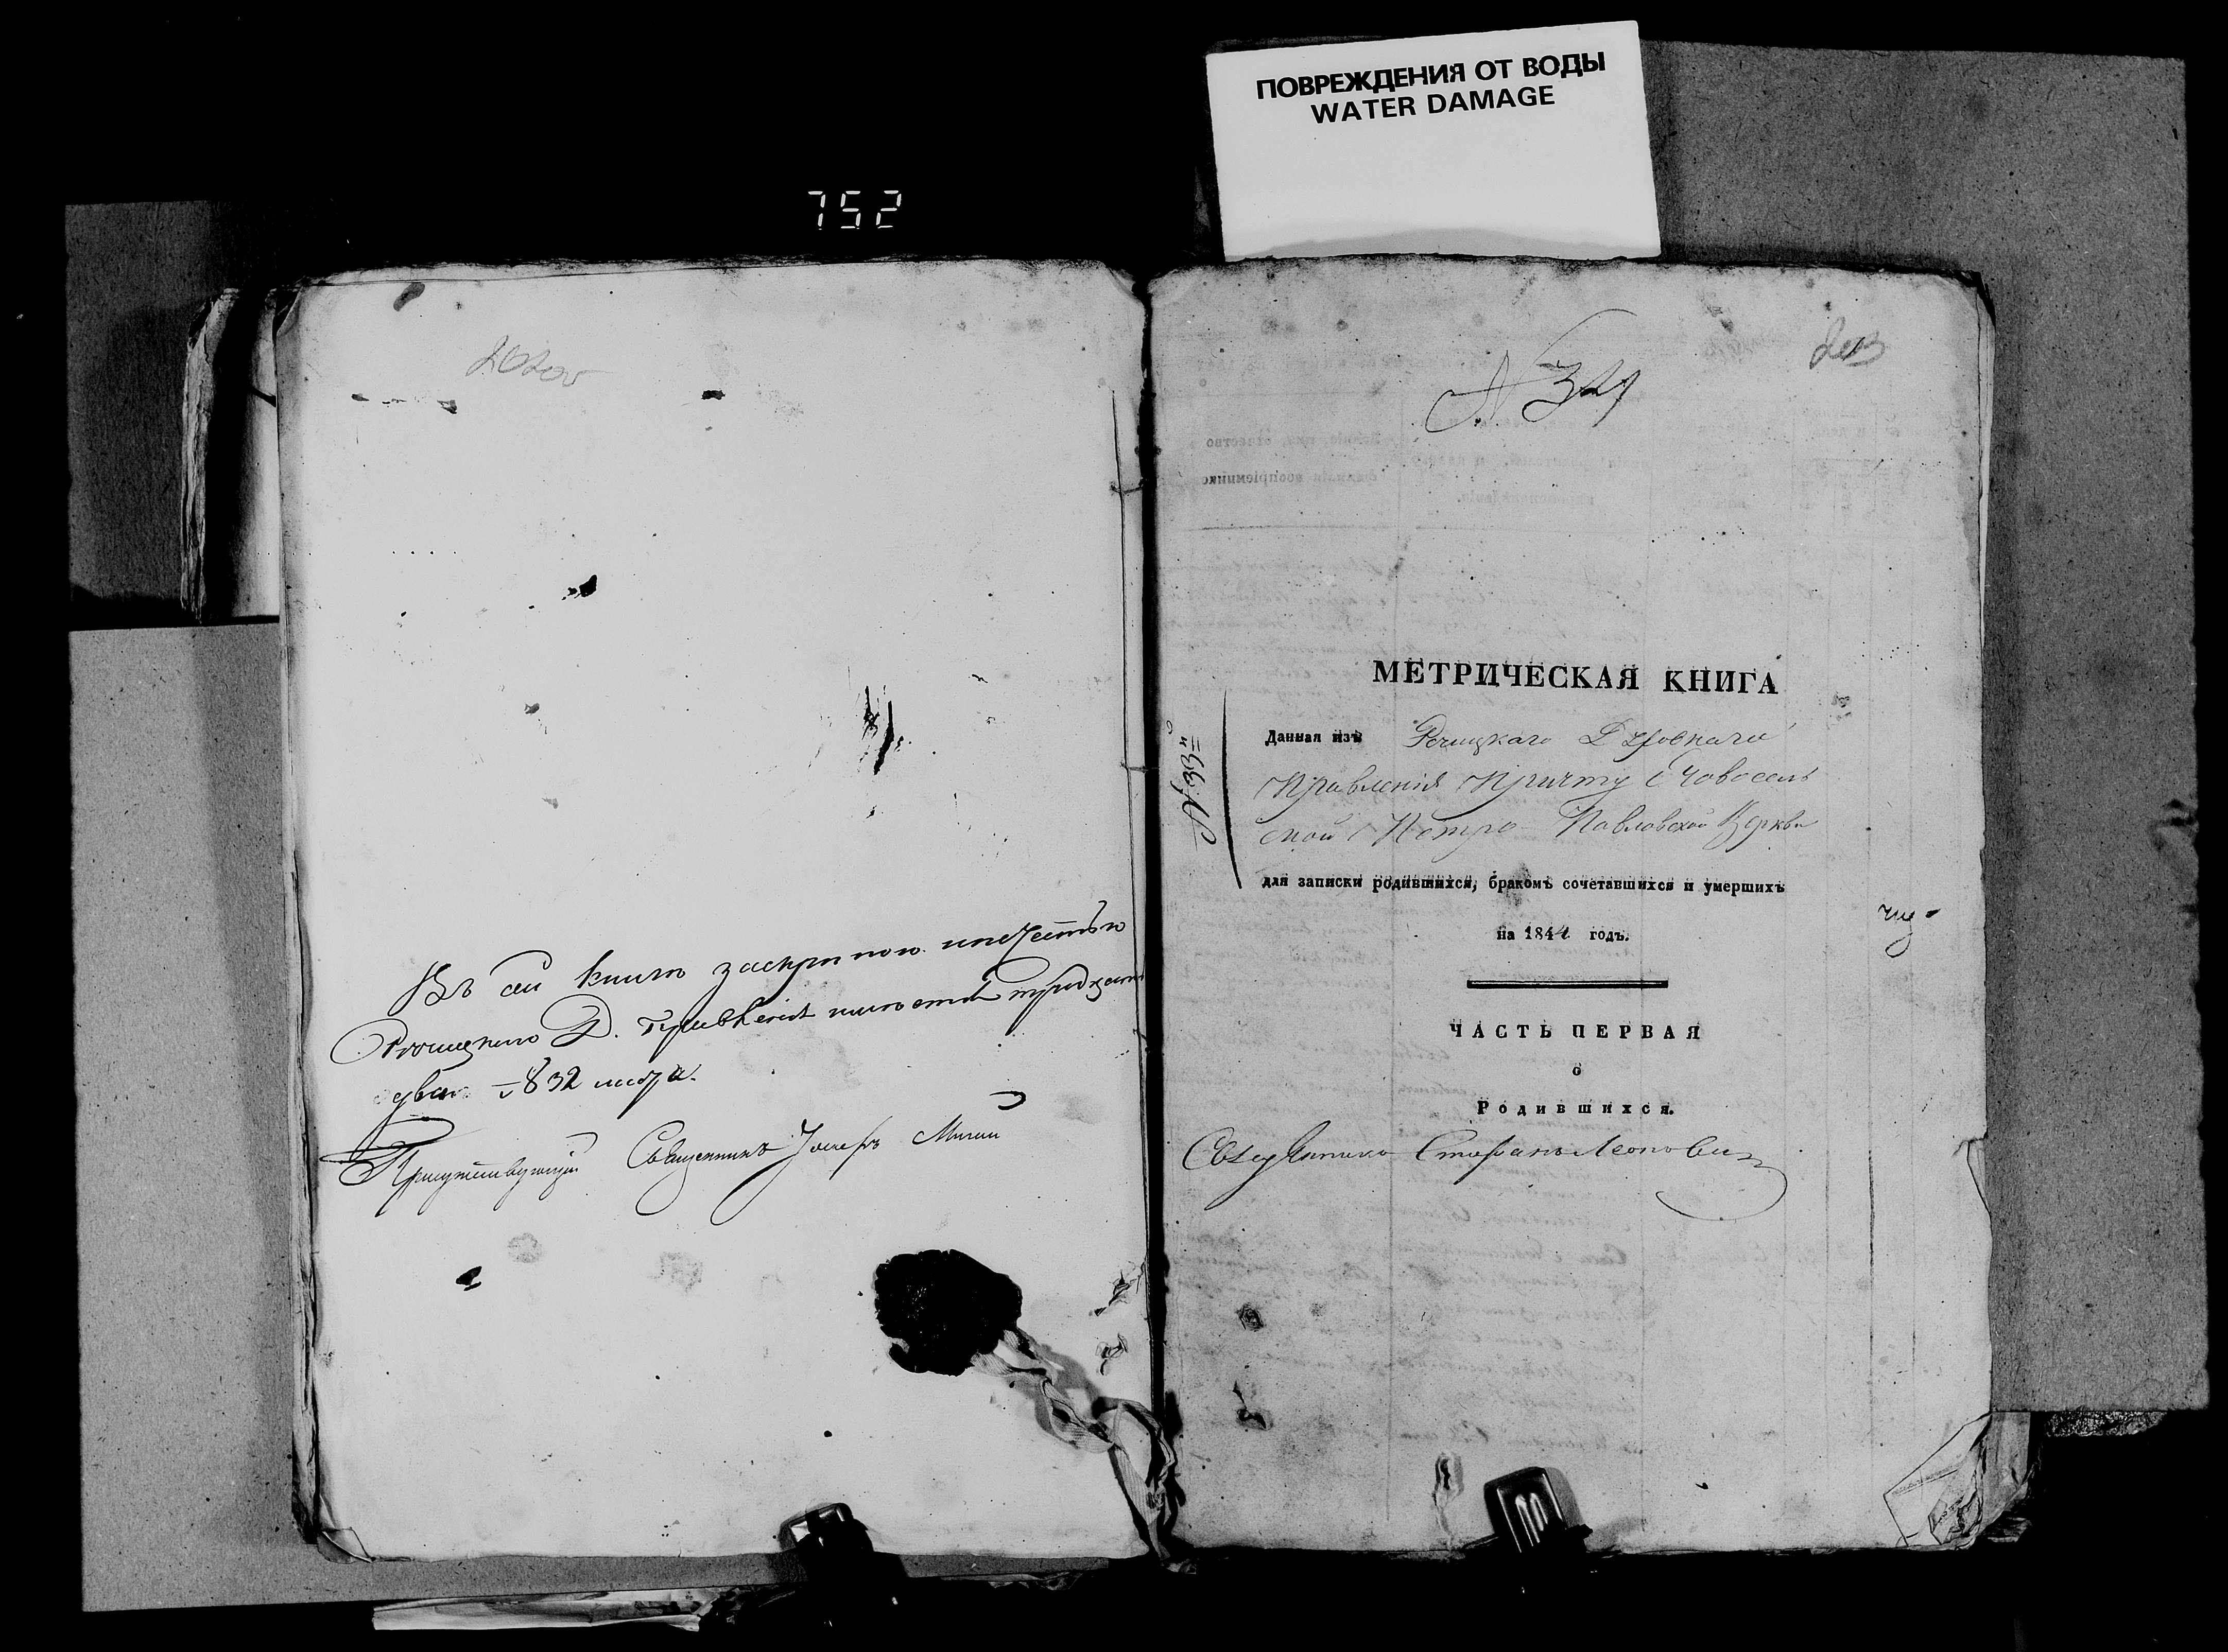 ПОВРЕЖДЕНИЯ ОТ ВОДЫ
WATER DAMAGE
752
202об
Въ сей книгѣ заскрепою и печатью
Рѣчицкаго Д. Правленія тридцать
два 32 листа.
Присутствующій Священникъ Іосифъ
203
N 321
N. 33
МЕТРИЧЕСКАЯ КНИГА
Данная изъ Речицкаго Духовнаго
Правленія Причту
ской Петро-Павловской Церкви
для записки родившихся, бракомъ сочетавшихся и умершихъ
на 1841 годъ.
ЧАСТЬ ПЕРВАЯ
о
Родившихся.
Священника Стефанъ Леоновичъ